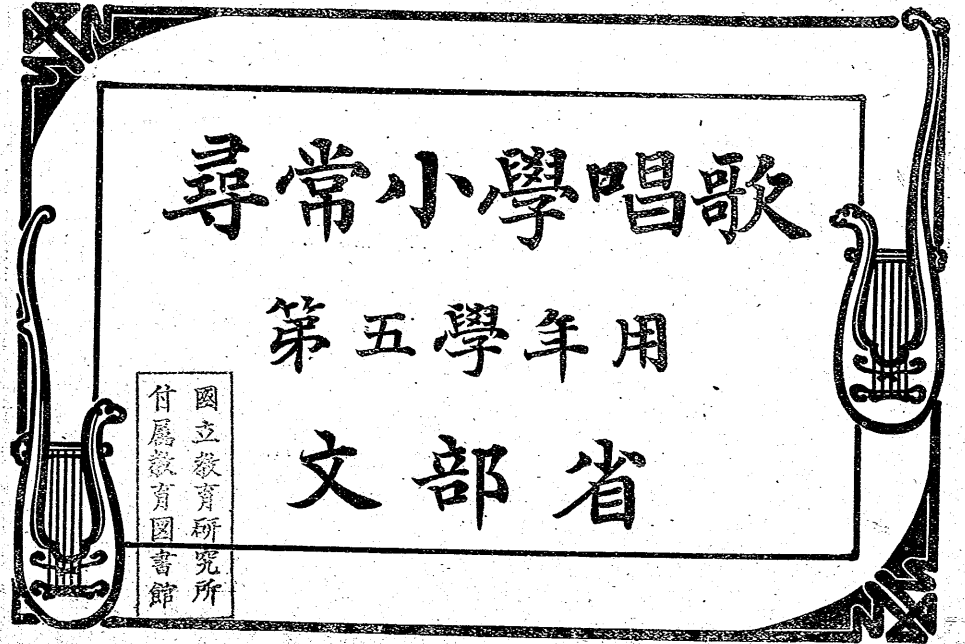 尋常小學唱歌
第五學年用
文部省
國立教育研究所
付属教育図書館